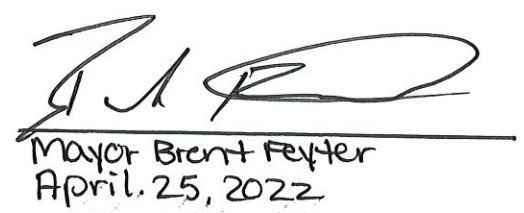 Mayor Brent Feyter
April. 25, 2022